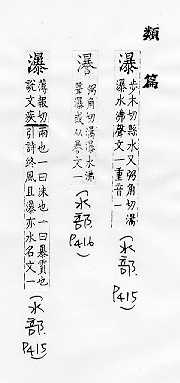 類篇
瀑 步木切縣水又弼角切濆
瀑水沸聲文一重音一
(水部 P415)
㵡 弼角切濆瀑水沸
聲瀑或从㬥文一
(水部 P416)
瀑 薄報切
說文疾雨也一曰沫也一曰瀑霣也
引詩終風且瀑亦水名文一
(水部 P415)